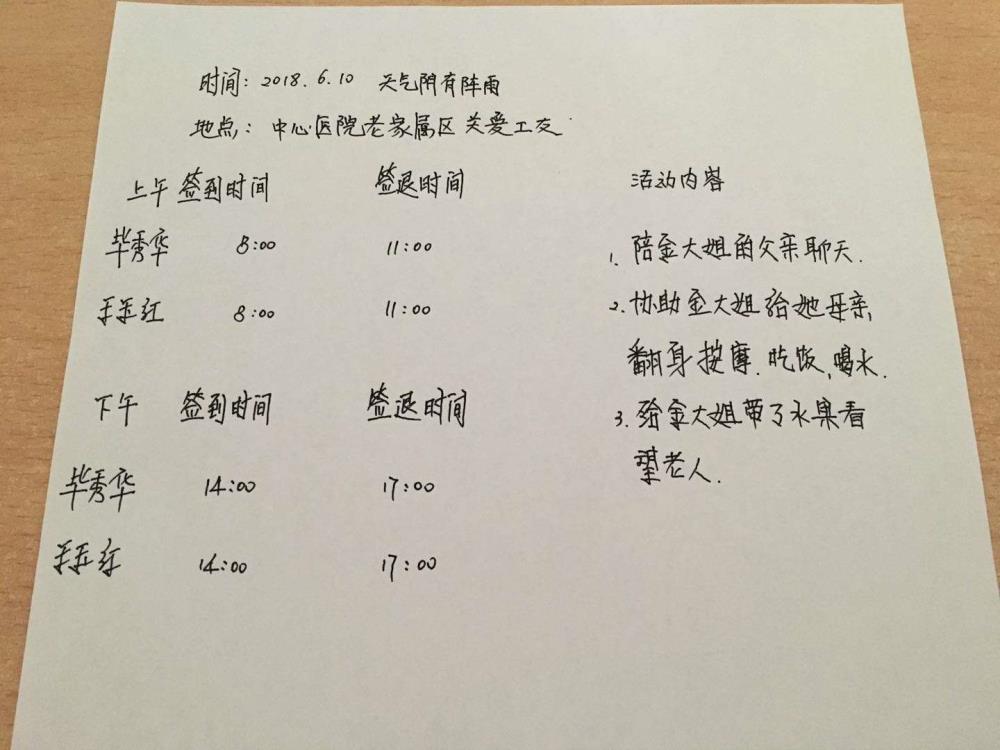 时间: 2018.6.10 天气阴有阵雨
地点: 中心医院老家属区关爱工友
上午 签到时间 签退时间 活动内容
毕秀华 8:00 11:00
8:00 11:00
下午 签到时间 签退时间
毕秀华 14:00 17:00
14:00 17:00
1. 陪金大姐的父亲聊天.
2. 协助金大姐给她母亲
翻身按摩.吃饭,喝水.
3. 给金大姐带了水果看
望老人.